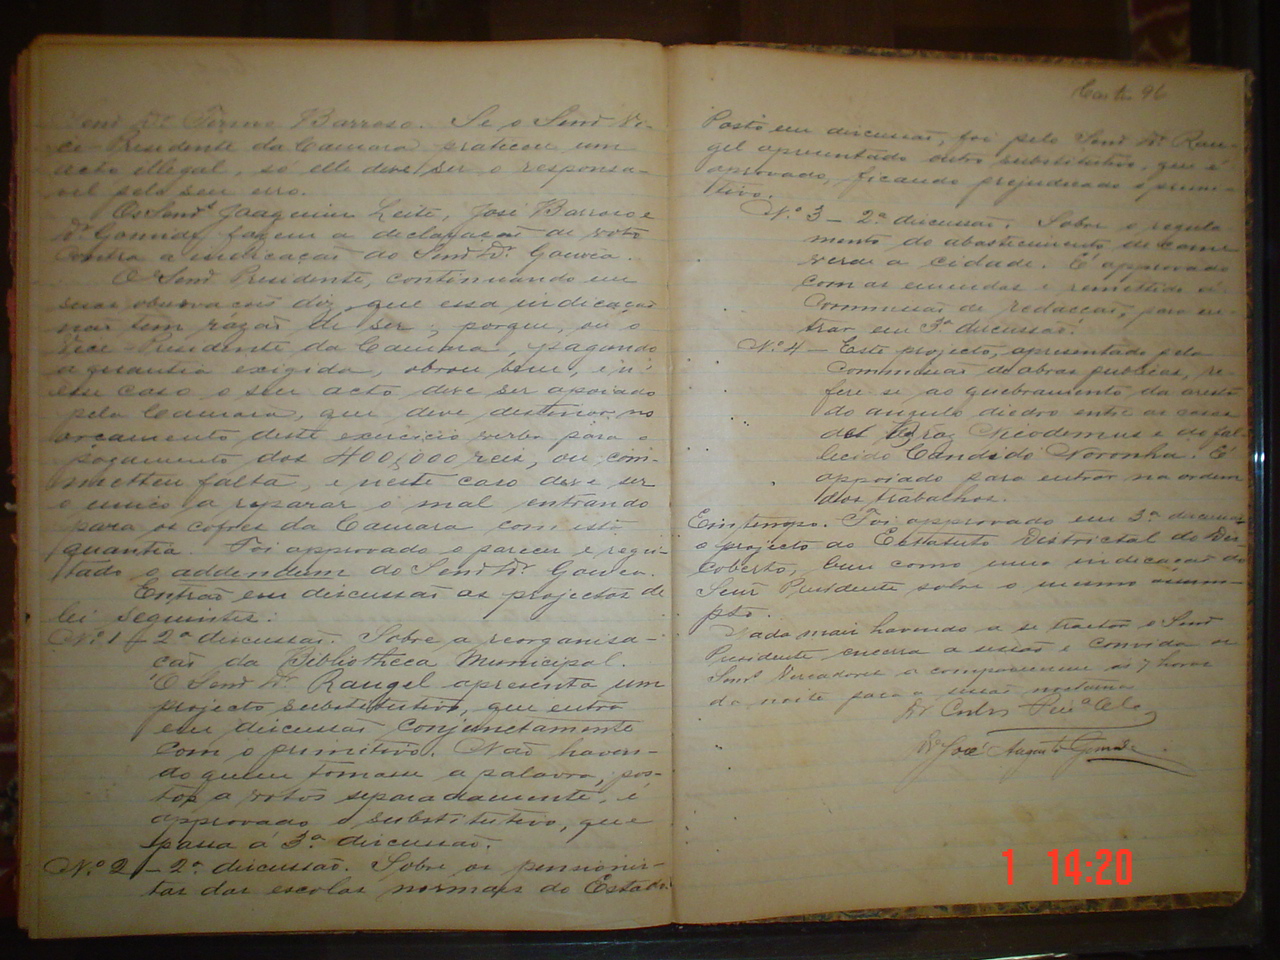 Senr. Dr. Firmo Barroso. Se o Senr. Vi-
ce-Presidente da Camara praticou um
acto illegal, só elle deve ser o responsa-
vel pelo seu erro.
Os Senrs. Joaquim Leite, José Barroso e
Dr. Gomide fazem a declaração de voto
contra a indicação do Senr. Dr. Gouvêa.
O Senr. Presidente, continuando em
suas observações diz, que essa indicação
não tem razão de ser; porque, ou o
Vice-Presidente da Camara, pagando
a quantia exigida, obrou bem, e n'
esse caso o seu acto deve ser apoiado
pela Camara, que deve destinar no
orçamento deste exercicio verba para o
pagamento dos 400,000 reis, ou com-
metteu falta, e neste caso deve ser
o unico a reparar o mal entrando
para os cofres da Camara com esta
quantia. Foi approvado o parecer e regei-
tado o addendum do Senr. Dr. Gouvea.
Entrão em discussão os projectos de
lei seguintes:
N.º 1 - 2ª discussão. Sobre a reorganisa-
ção da Bibliotheca Municipal.
O Senr. Dr. Rangel apresenta um
projecto substitutivo, que entra
em discussão conjunctamente
com o primitivo. Não haven-
do quem tomasse a palavra, pos-
tos a votos separadamente, é
approvado o substitutivo, que
passa á 3ª discussão.
N.º 2 - 2ª discussão. Sobre os pensionis-
tas das escolas normaes do Estado.
96
Posto em discussão, foi pelo Senr. Dr. Ran-
gel apresentado outro substitutivo, que é
approvado, ficando prejudicado o primi-
tivo.
N.º 3 - 2ª discussão. Sobre o regula
mento do abastecimento de carne
verde a cidade. É approvado
com as emendas e remettido á
Commissão de redacção, para en-
trar em 3ª discussão.
N.º 4 - Este projecto, apresentado pela
Commissão de obras publicas, re-
fere-se ao quebramento da aresta
do angulo diedro entre as casas
de Braz Nicodemus e do fal-
lecido Candido Noronha. É
apoiado para entrar na ordem
dos trabalhos.
Em tempo. Foi approvado em 3ª discussão
o projecto do Estatuto Districtal do Des
coberto, bem como uma indicação do
Senr. Presidente sobre o mesmo assum-
pto.
Nada mais havendo a se tractar o Senr.
Presidente encerra a sessão e convida os
Senrs. Vereadores a comparecerem ás 7 horas
da noite para a sessão nocturna
Dr. José Augusto Gomide
1 14:20